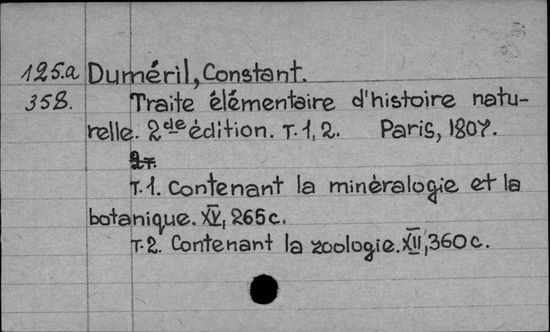 125.a Duméril, Constant.
358. Traite élémentaire d'histoire natu-
relle. 2de édition. T. 1, 2. Paris, 1807.
2т.
T. 1. Contenant la minéralogie et la
botanique. XV, 265 c.
T. 2. Contenant la zoologie. XII, 360 c.